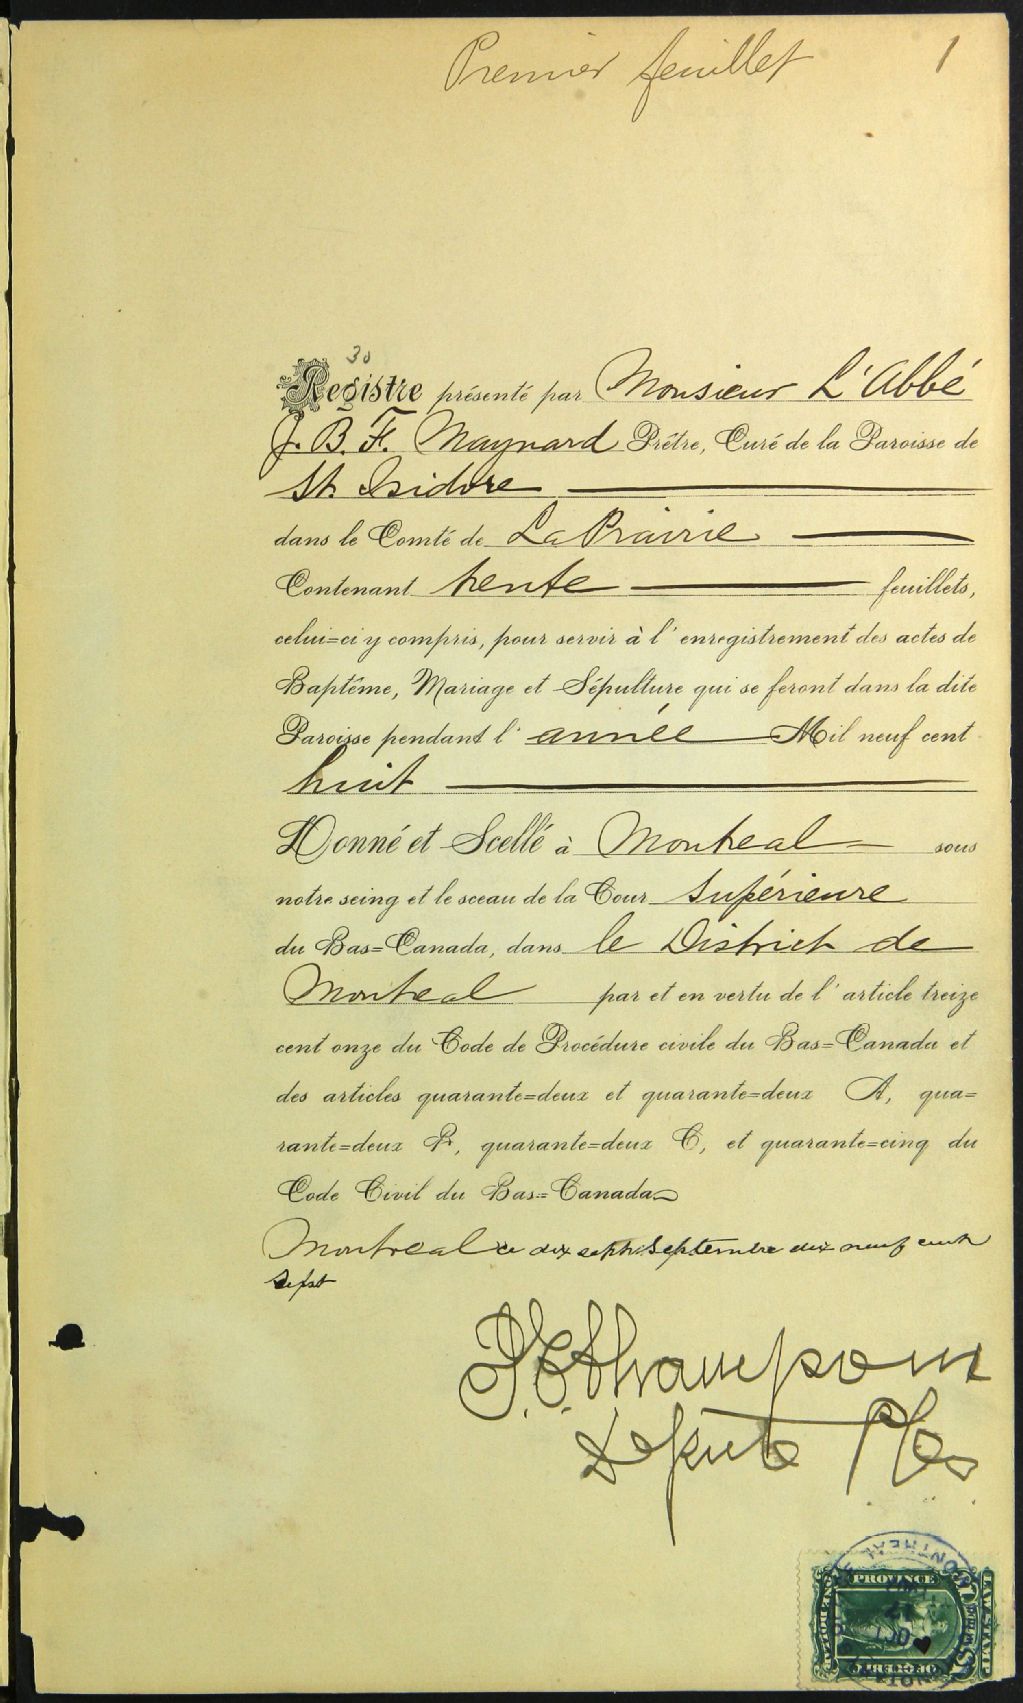 Premier feuillet 1
30
Registre présenté par Monsieur L'Abbé
J. B. F. Maynard Prêtre, Curé de la Paroisse de
St. Isidore
dans le Comté de LaPrairie
Contenant trente feuillets,
celui=ci y compris, pour servir à l'enregistrement des actes de
Baptême, Mariage et Sépulture qui se feront dans la dite
Paroisse pendant l'année Mil neuf cent
huit
Donné et Scellé à Montreal sous
notre seing et le sceau de la Cour Supérieure
du Bas=Canada, dans le District de
Montreal par et en vertu de l'article treize
cent onze du Code de Procédure civile du Bas=Canada et
des articles quarante=deux et quarante=deux A, qua=
rante=deux B, quarante=deux C, et quarante=cinq du
Code Civil du Bas=Canada
Montreal ce dix sept Septembre dix neuf cent
sept
Député
MONTREAL
PROVINCE
LAW STAMP